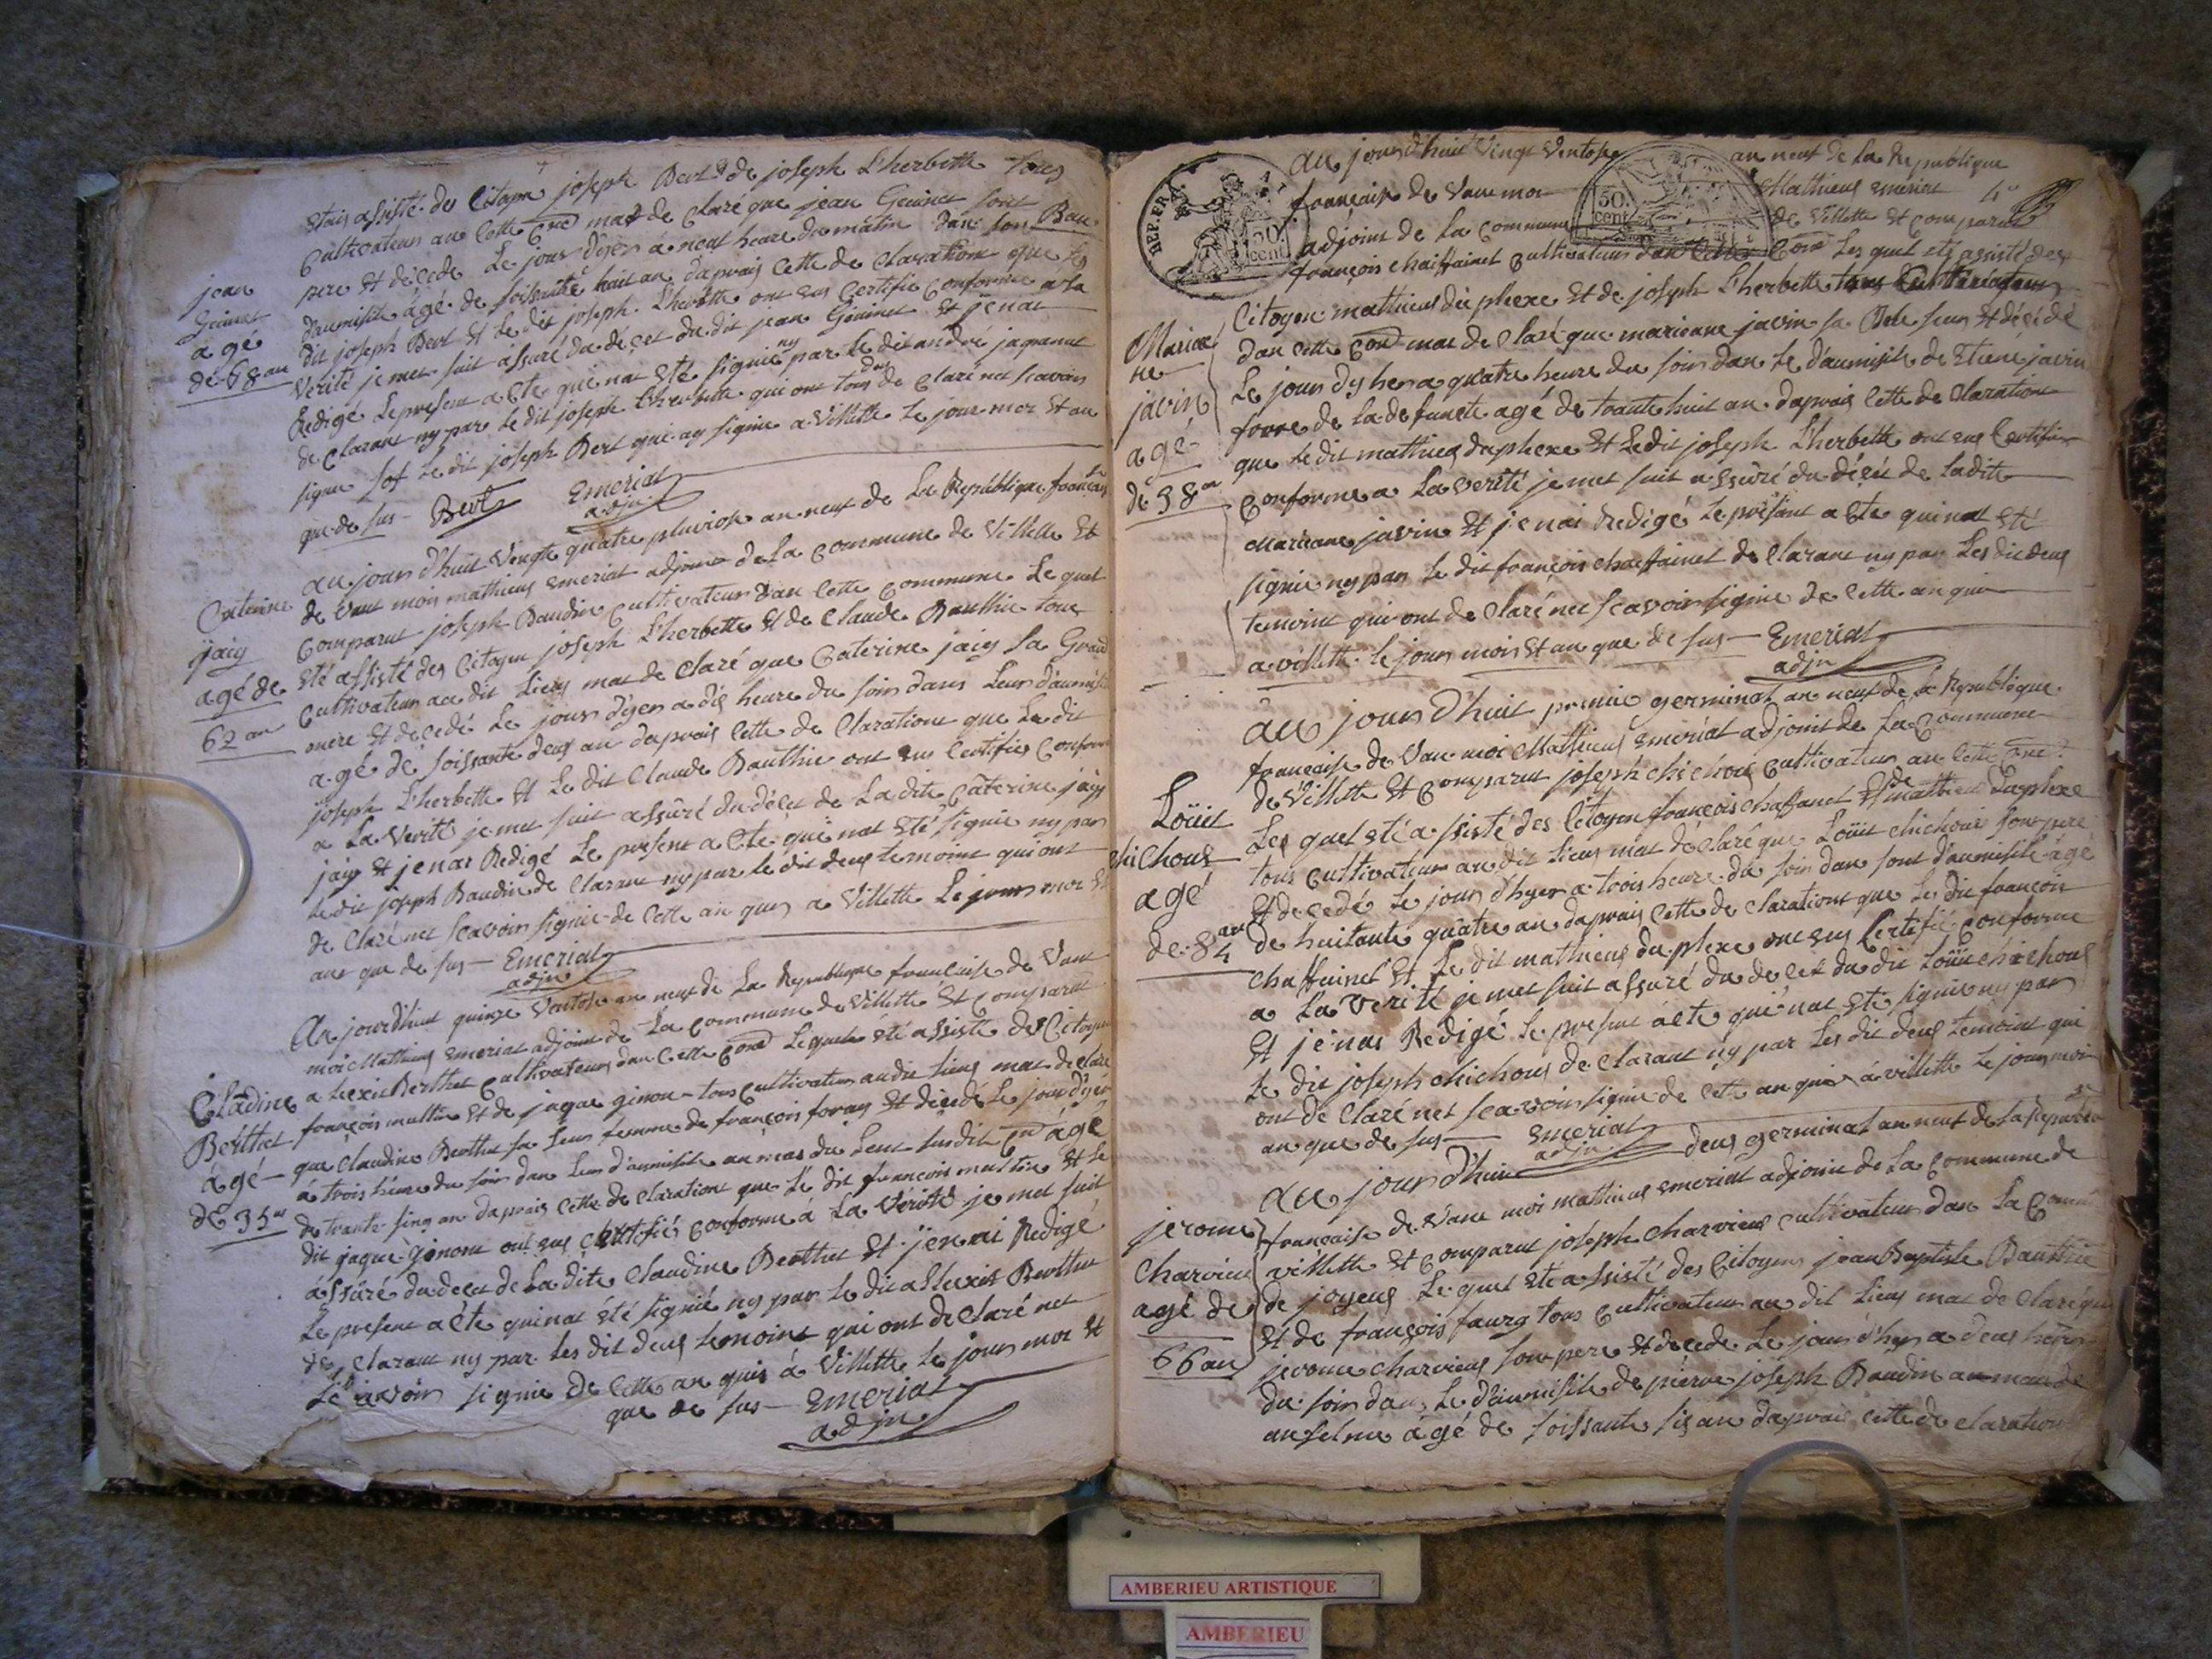 etais assisté des Citoyen joseph Bert & de joseph L'herbette tous
Cultivateur au Cette Cne mat de Claré que jean Geninet sont
pere Et décédé Le jour d'yer à neuf heure du matin dan son
d'aumisile âgé de soissante huit an dapraix Cette de Claration que Les
dit joseph Bert Et Le dit joseph L'herbette ont eus Certifié Conforme a La
Verité je met suit assuré du décet du dit jean Geninet Et j'enat
Redigé Le present acte qui nat Eté signié ny par Le dit andré jaquemet
de Clarant ny par Le dit joseph L'herbette qui ont tous deux de Claré net scavoir
signer sof Le dit joseph Bert qui ay signié a Villette Le jour mor Et an
que de sus - Bert Emeriat
adjn
jean
Geninet
agé
de 68 an
au jour d'huit Vingte quatre pluviose an neuf de La Republique francaise
de Vant moi mathieu emeriat adjoint de La Commune de Villette Et
Comparut joseph Baudin Cultivateur dan Cette Commune Le quel
Eté assisté des Citoyen joseph L'herbette Et de Claude Bauthie tous
Cultivateur au dit Lieus mat de Claré que Caterine jaiy sa Grand
mere Et decedé Le jour d'yer a dis heure du soir dans Leur d'aumisile
agé de soissante deus an dapraix Cette de Claration que Le dit
joseph L'herbette Et Le dit Claude Bauthie ont eus Certifiés Conforme
a La Verité je met suit assuré du décet de La dite Caterine jaiy
jaiy Et jenai Redigé Le present acte qui nat Eté signié ny par
Le dit joseph Baudin de Clarant ny par Le dit deus temoint qui ont
de Claré net scavoir signié de Cette an ques a Villette Le jour mor Et
an que de sus - Emeriat
adjn
Caterine
jaiy
agé de
62 an
Au jour d'huit quinze Ventose an neuf de La Republique francaise de Vant
moi Mathieus emeriat adjoint de La Commune de Villette Et Comparut
alexis Berthet Cultivateur dan Cette Cone Lequele eté assisté des Citoyen
francois multin Et de jaque ginon tous Cultivateur audit Lieus mat de Claré
que Claudine Berthet sa seur femme de francois foray Et décedé Le jour d'yer
à trois heure du soir dan Leur d'aumisile au mas du Leut susdit Cne âgé
de trante sinq an dapraix Cette de Claration que Le dit francois multin Et Le
dit jaque ginont ont eus Certifiés Conforme a La Verité je met suit
assuré du decet de La dite Claudine Berthet Et j'enai Redigé
Le present acte qui nat Eté signié ny par Le dit allexis Berthet
de Clarant ny par Les dit deus temoint qui ont de Claré net
scavoir signié de Cette an quis à Villette Le jour mor Et
que de sus - Emeriat
adjn
Cladine
Berthet
âgé
de 35 an
au jour d'huit Vingt Ventose an neuf de La Republique
francaise de Vant moi Mathieus emeriat
adjoint de La Commune de Villette Et Comparut
françois Chaffainet Cultivateur dan Cette Cone Les quel eté assisté des
Citoyen mathieus duplexe Et de joseph L'herbette tous Cultivateur
dan Cette Cone mat de Claré que mariane javin sa Bele seur Et décédé
Le jour dyher a quatre heure du soir dan Le d'aumisile de Etiene javin
frere de La defuncte agé de trante huit an dapraix Cette de Claration
que Le dit mathieus duplexe Et Le dit joseph L'herbette ont eus Certifier
Conforme a La verité je met suit assuré du décét de Ladite
Mariane javin Et je nai Redigé Le présant acte qui nat Eté
signié ny par Le dit françois Chaffainet de Clarant ny par Les dit deus
temoint qui ont de Claré net scavoir signié de Cette an quis
a villette Le jour mois Et an que de sus - Emeriat
adjn
4e
DEP. FRA.
50
cent
50.
cent
Maria
ne
javin
agé
de 38 an
au jour d'huit premié germinal an neuf de la Republique
francaise de Vant moi Mathieus emeriat adjoint de La Commune
de Villette Et Comparut joseph chichous Cultivateur au Cette Cne
Les quel eté assisté des Citoyen françois chaffainet Et de mathieu duplexe
tous Cultivateur au dit Lieus mat de Claré que Loüit chichous son pere
Et decedé Le jour d'hyer a trois heure du soir dan sont d'aumisile âgé
de huitante quatre an dapraix Cette de Claration que Les dit francois
chaffainet Et Le dit mathieus duplexe ont eus Certifié Conforme
a La Verité je met suit assuré du decet du dit Loüit chichous
Et je nai Redigé Le present acte qui nat eté signié ny par
Le dit joseph chichous de Clarant ny par Les dit deus temoint qui
ont de Claré net scavoir signié de Cette an quis à villette Le jour mois
an que de sus - Emeriat
adjn
Loüit
chichous
agé
de 84 an
au jour d'huit deus germinal an neuf de La Republique
francaise de Vant moi mathieus emeriat adjoint de La Commune de
villette Et Comparut joseph Charvieus Cultivateur dan La Comune
de joyeus Le quel eté assisté des Citoyens jean Baptiste Bauthie
Et de françois faurg tous Cultivateur au dit Lieus mat de Claré que
jerome Charvieus son pere Et decede Le jour d'hyer a deus heure
du soir dan Le d'aumisile de pierre joseph Baudin au mas de
anselme âgé de soissante sis an dapraix Cette de Claration
jerome
Charvieus
agé de
66 an
AMBERIEU ARTISTIQUE
AMBERIEU